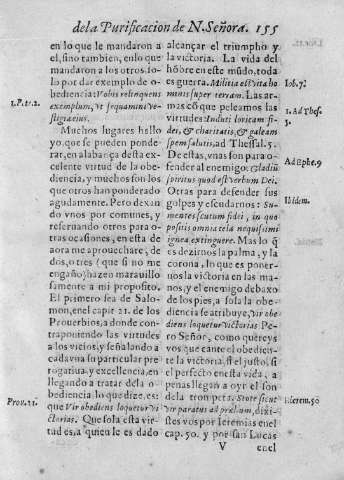 de la Purificacion de N. Señora. 155
en lo que le mandaron a
el, sino tambien, en lo que
mandaron a los otros. so-
lo por dar exemplo de o-
bediencia: Vobis relinquens
exemplum, vt sequamini ve-
stigia eius.
Muchos lugares hallo
yo, que se pueden ponde-
rar, en alabança desta ex-
celente virtud de la obe-
diencia, y muchos son los
que otros han ponderado
agudamente. Pero dexan
do vnos por comunes, y
reseruando otros para o-
tras ocasiones, en esta de
aora me aprouechare, de
dos, o tres (que si no me
engaño) hazen marauillo
samente a mi proposito.
El primero sea de Salo-
mon, en el capit 21. de los
Prouerbios, a donde con-
traponiendo las virtudes
a los vicios, y señalando a
cada vna su particular pre
rogatiua, y excellencia, en
llegando a tratar dela o-
bediencia lo que dize, es:
que Vir obediens loquetur vi
ctorias. Que sola esta vir-
tud es, a quien le es dado
1. P. t. 2.
Prou. 21.
alcançar el triumpho y
la victoria. La vida del
hõbre en este mũdo, toda
es guerra. Militia est vita ho
minis super terram. Las ar-
mas cõ que peleamos las
virtudes: Induti loricam fi-
dei, & charitatis, & galeam
spem salutis, ad Thessal. 5.
De estas, vnas son para o-
fender al enemigo: Gladiũ
spiritus quod est Verbum Dei.
Otras para defender sus
golpes y escudarnos: Su-
mentes scutum fidei, in quo
positis omnia tela nequissimi
ignea extinguere. Mas lo q̃
es dezirnos la palma, y la
corona, lo que es poner-
nos la victoria en las ma-
nos, y el enemigo debaxo
de los pies, a sola la obe-
diencia se atribuye, Vir obe
diens loquetur victorias Pe-
ro Señor, como quereys
vos que cante el obedien-
te la victoria, si el justo, si
el perfecto en esta vida, a
penas llegan a oyr el son
de la trompeta. Statesicut
vir paratus ad prælium, dixi-
stes vos por Ieremias en el
cap. 50. y por san Lucas
Iob. 7.
1. Ad Thess.
5.
Ad Ephe. 9
Ibidem.
Hierem. 50
V
en el